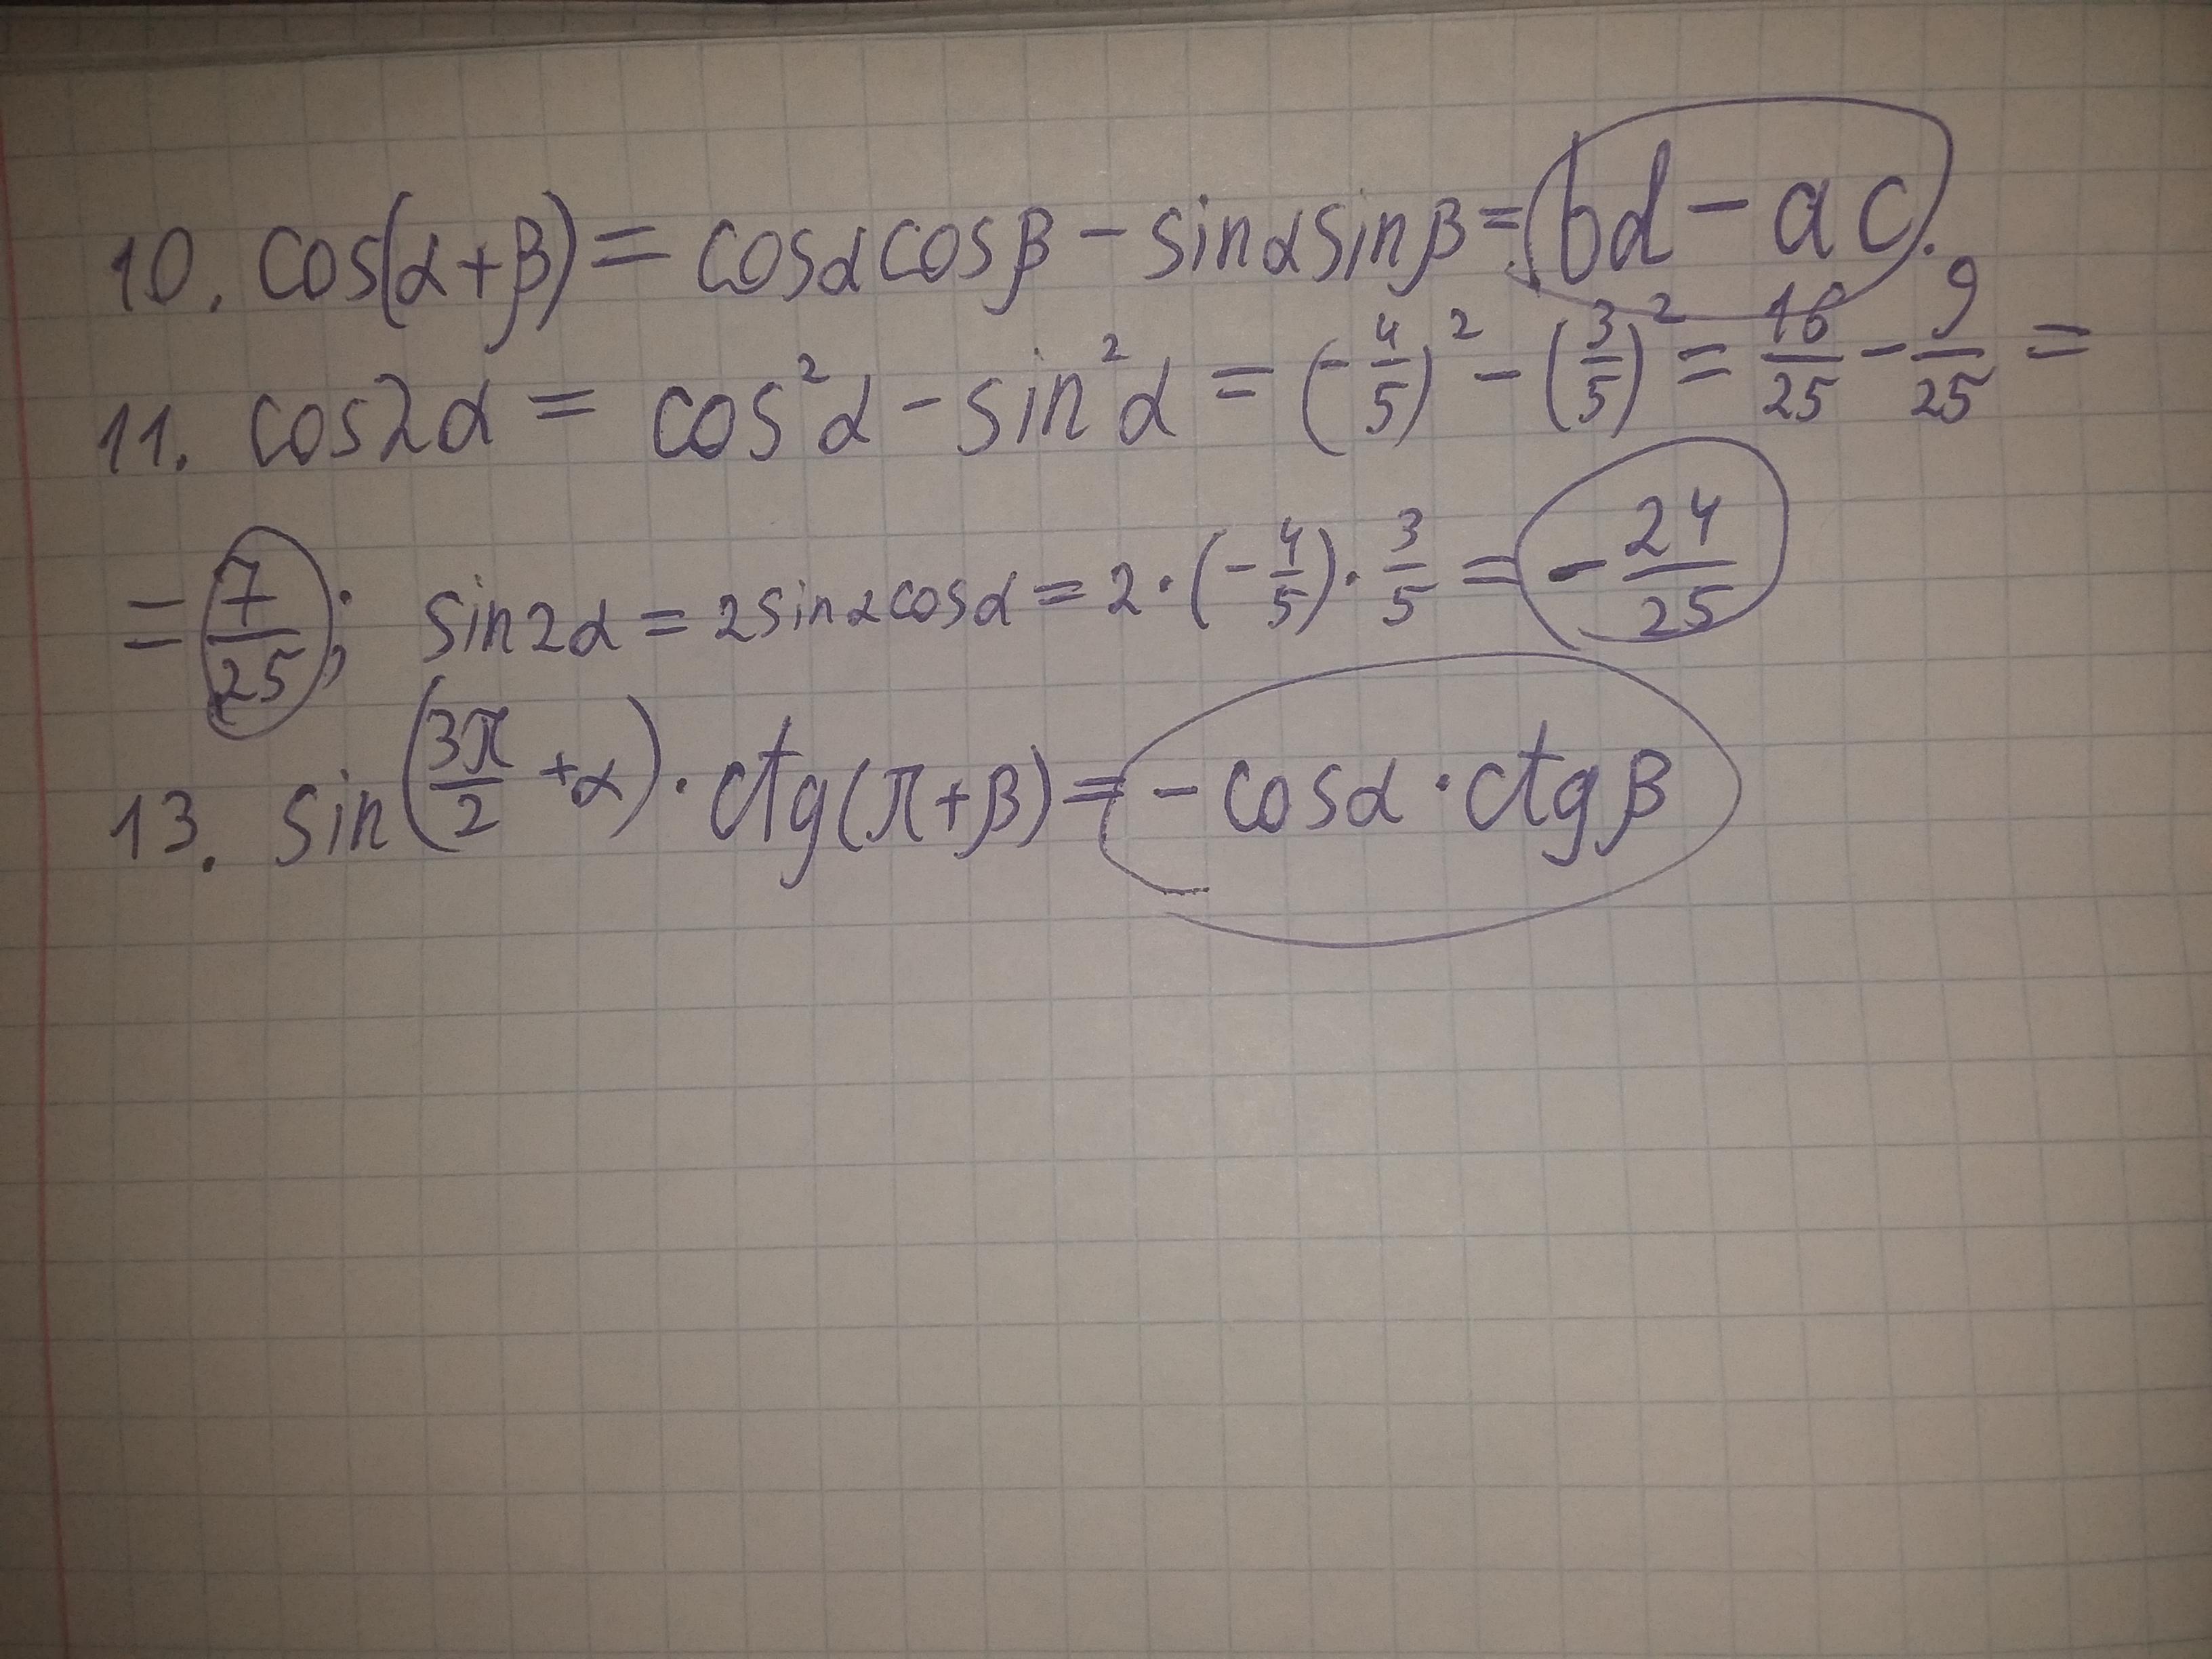 10. cos(α+β) = cosαcosβ - sinαsinβ = bd - ac.
11. cos2α = cos²α - sin²α = (-4/5)² - (3/5)² = 16/25 - 9/25 =
= 7/25; sin2α = 2sinαcosα = 2·(-4/5)·3/5 = -24/25
13. sin(3π/2 + α)·ctg(π+β) = -cosα·ctgβ